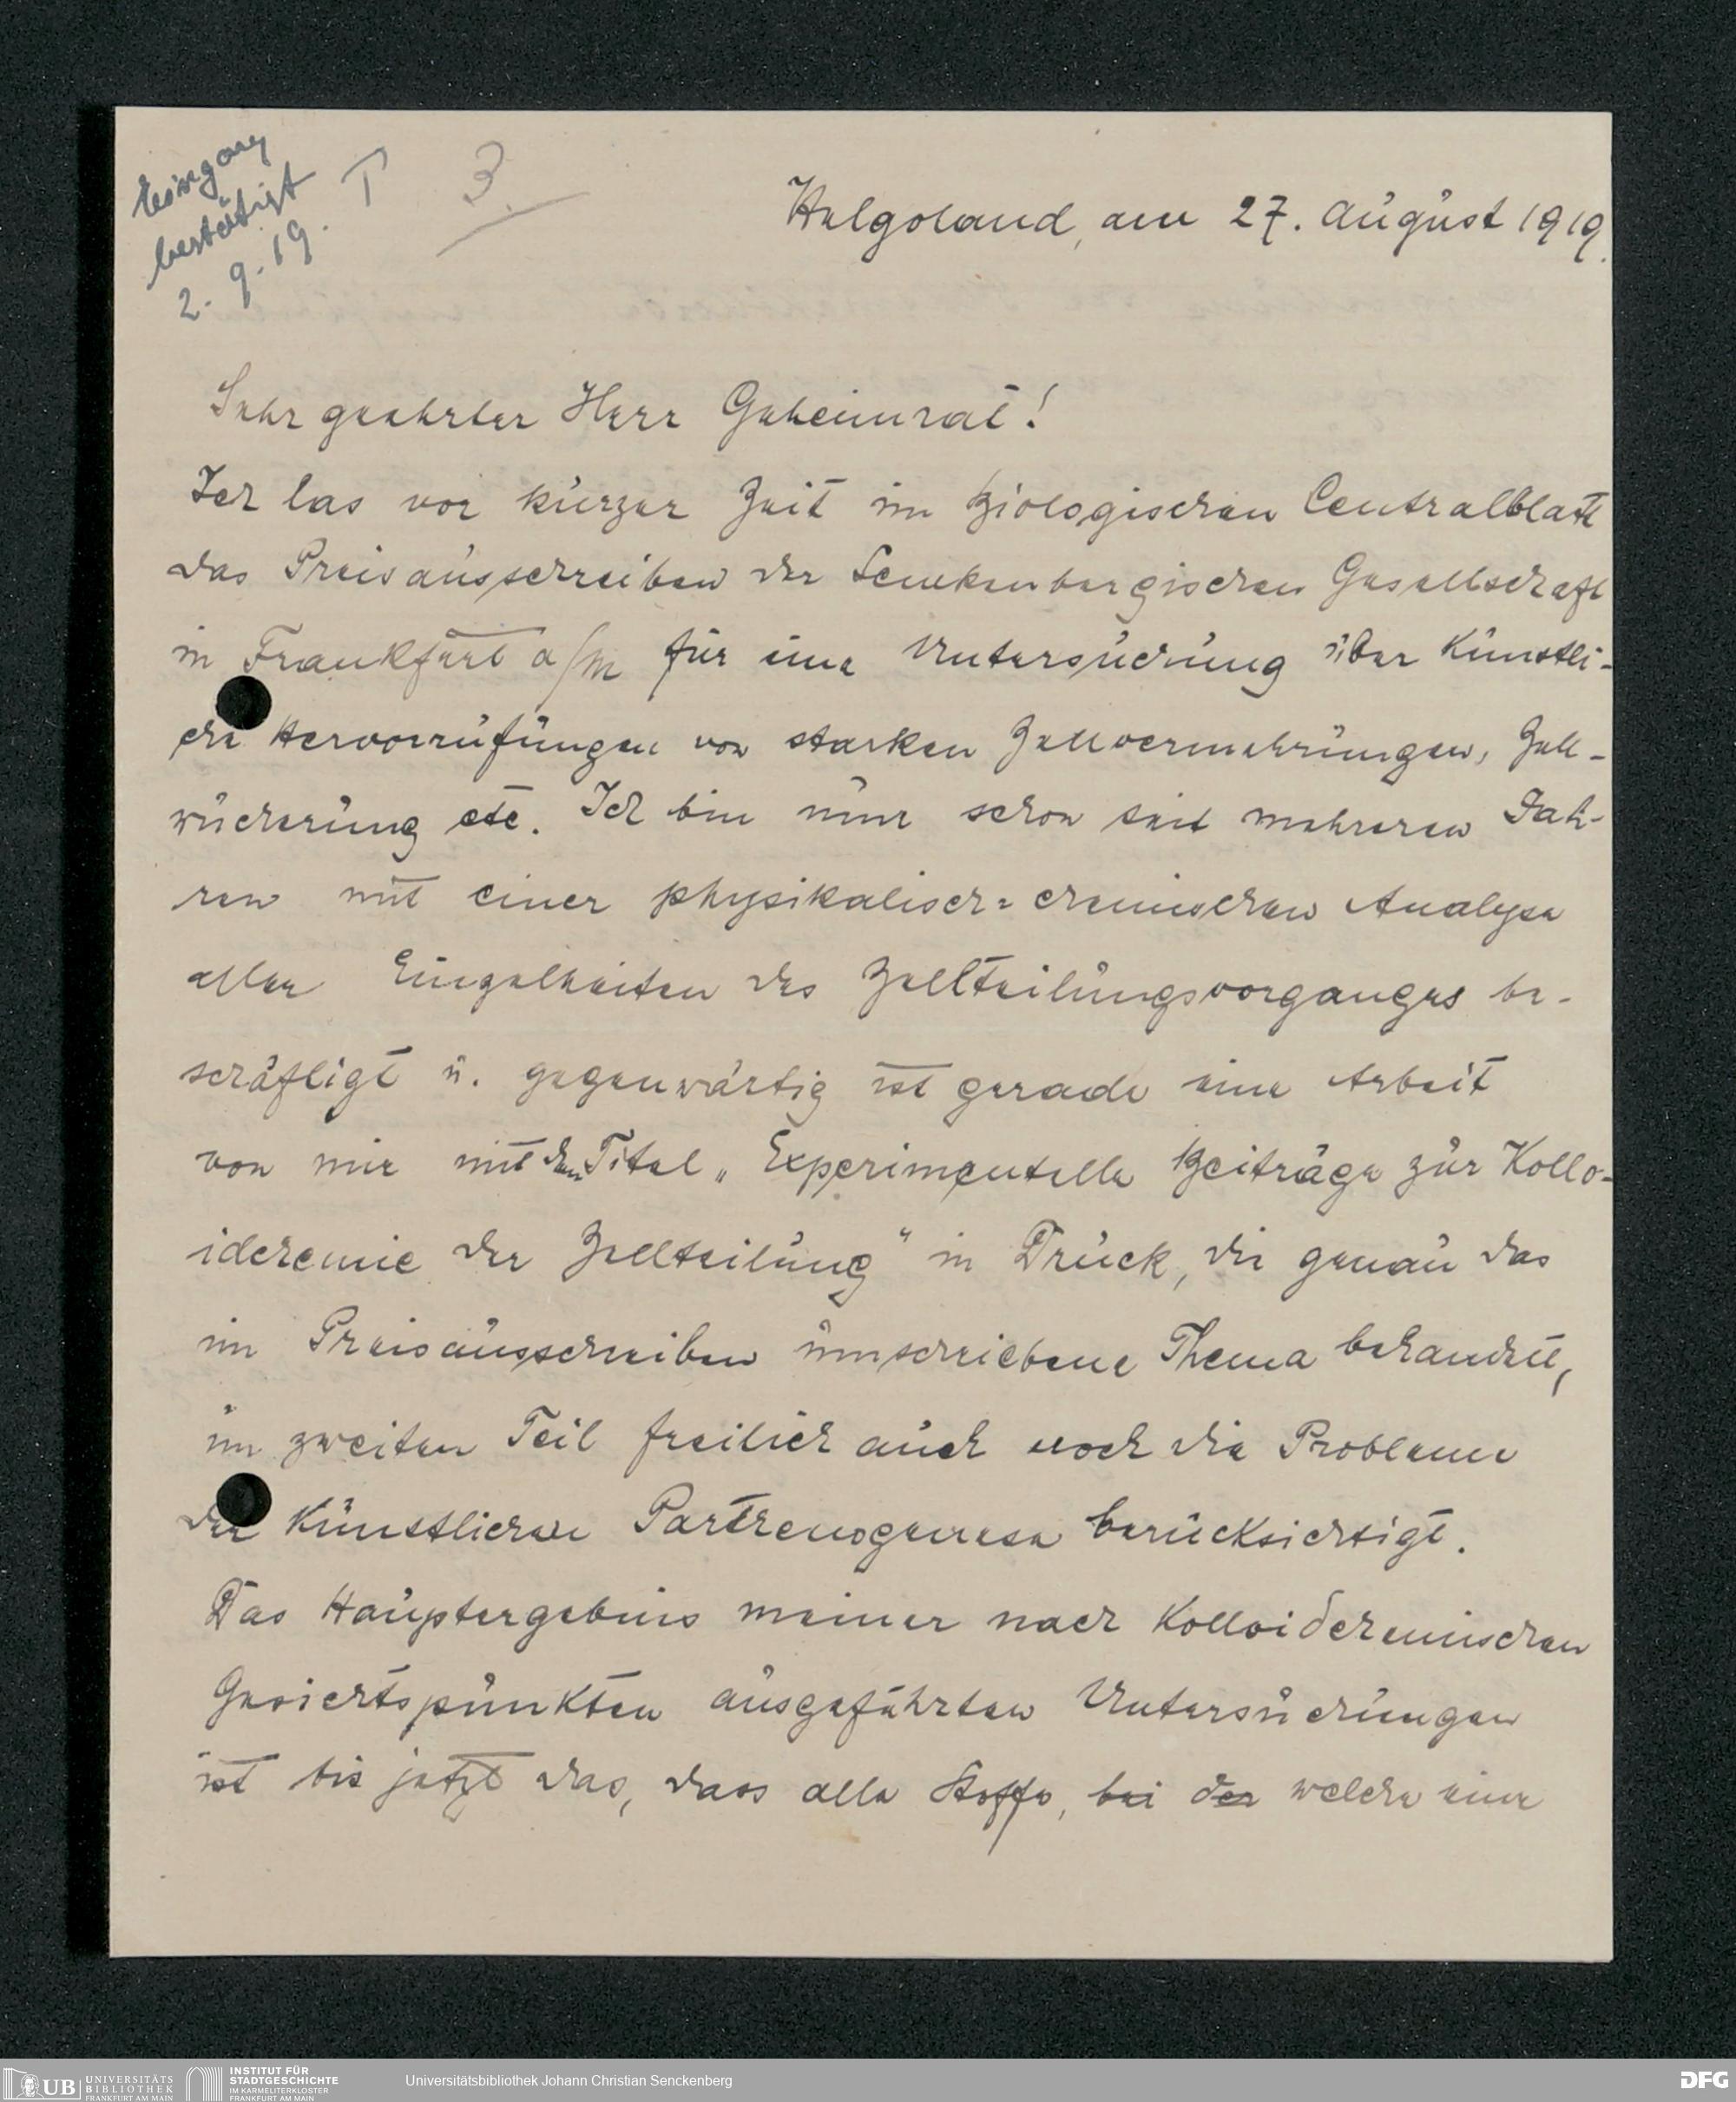 Eingang
bestätigt
2. 9. 19. T
3.
Helgoland, am 27. August 1919.
Sehr geehrter Herr Geheimrat!
Ich las vor kurzer Zeit im Biologischen Centralblatt
das Preisausschreiben der Senckenbergischen Gesellschaft
in Frankfurt a/M für eine Untersuchung über künstli-
che Hervorrufungen von starken Zellvermehrungen, Zell-
wucherung etc. Ich bin nun schon seit mehreren Jah-
ren mit einer physikalisch-chemischen Analyse
aller Einzelheiten des Zellteilungsvorganges be-
schäftigt u. gegenwärtig ist gerade eine Arbeit
von mir mit dem Titel „Experimentelle Beiträge zur Kollo-
idchemie der Zellteilung" in Druck, die genau das
im Preisausschreiben umschriebene Thema behandelt,
im zweiten Teil freilich auch noch die Probleme
der künstlichen Parthenogenese berücksichtigt.
Das Hauptergebnis meiner nach kolloidchemischen
Gesichtspunkten ausgeführten Untersuchungen
ist bis jetzt das, dass alle Stoffe, bei der welche eine
UB UNIVERSITÄTS
BIBLIOTHEK
FRANKFURT AM MAIN
INSTITUT FÜR
STADTGESCHICHTE
IM KARMELITERKLOSTER
FRANKFURT AM MAIN
Universitätsbibliothek Johann Christian Senckenberg
DFG